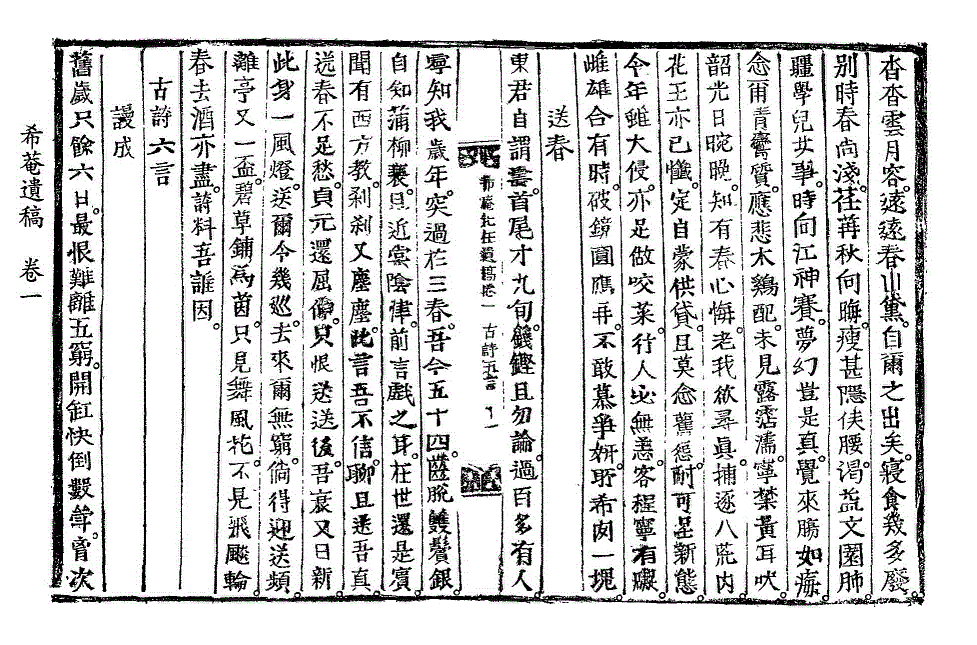 杳杳雲月容遠遠春川黛自爾之出矣寢食幾多廢
別時春尚淺荏苒秋向晦瘦甚隱侯腰渴益文園肺
疆學兒女事時向江神賽夢幻豈是真覺來腸如痗
念爾青鸞質應悲木鷄配未見露霑濡寧禁黃耳吠
韶光日晼晚知有春心悔老我欲尋眞捕逐八荒內
花王亦已懺定自蒙供貸且莫念舊愆耐可呈新態
今年雖大侵亦足做咬菜行人必無恙客程寧有礙
雌雄合有時破鏡圓應再不敢慕爭妍盱希肉一塊
送春
東君自謂壽首尾才九旬籛鏗且勿論過百多有人
希庵先生遺稿卷一 古詩五言
寧知我歲年突過於三春吾今五十四齒脫雙鬢銀
自知蒲柳衰且近棠陰倳前言戲之耳在世還是賓
聞有西方敎剎剎又塵塵此言吾不信聊且送吾真
送春不足愁貞元還屈伸只恨送送後吾衰又日新
此身一風燈送爾今幾巡去來爾無窮倘得迎送頻
離亭又一盃碧草鋪爲茵只見舞風花不見飛飈輪
春去酒亦盡詩料吾誰因
古詩六言
謾成
舊歲只餘六日最恨難離五窮開缸快倒數聲胷次
希菴遺稿 卷一